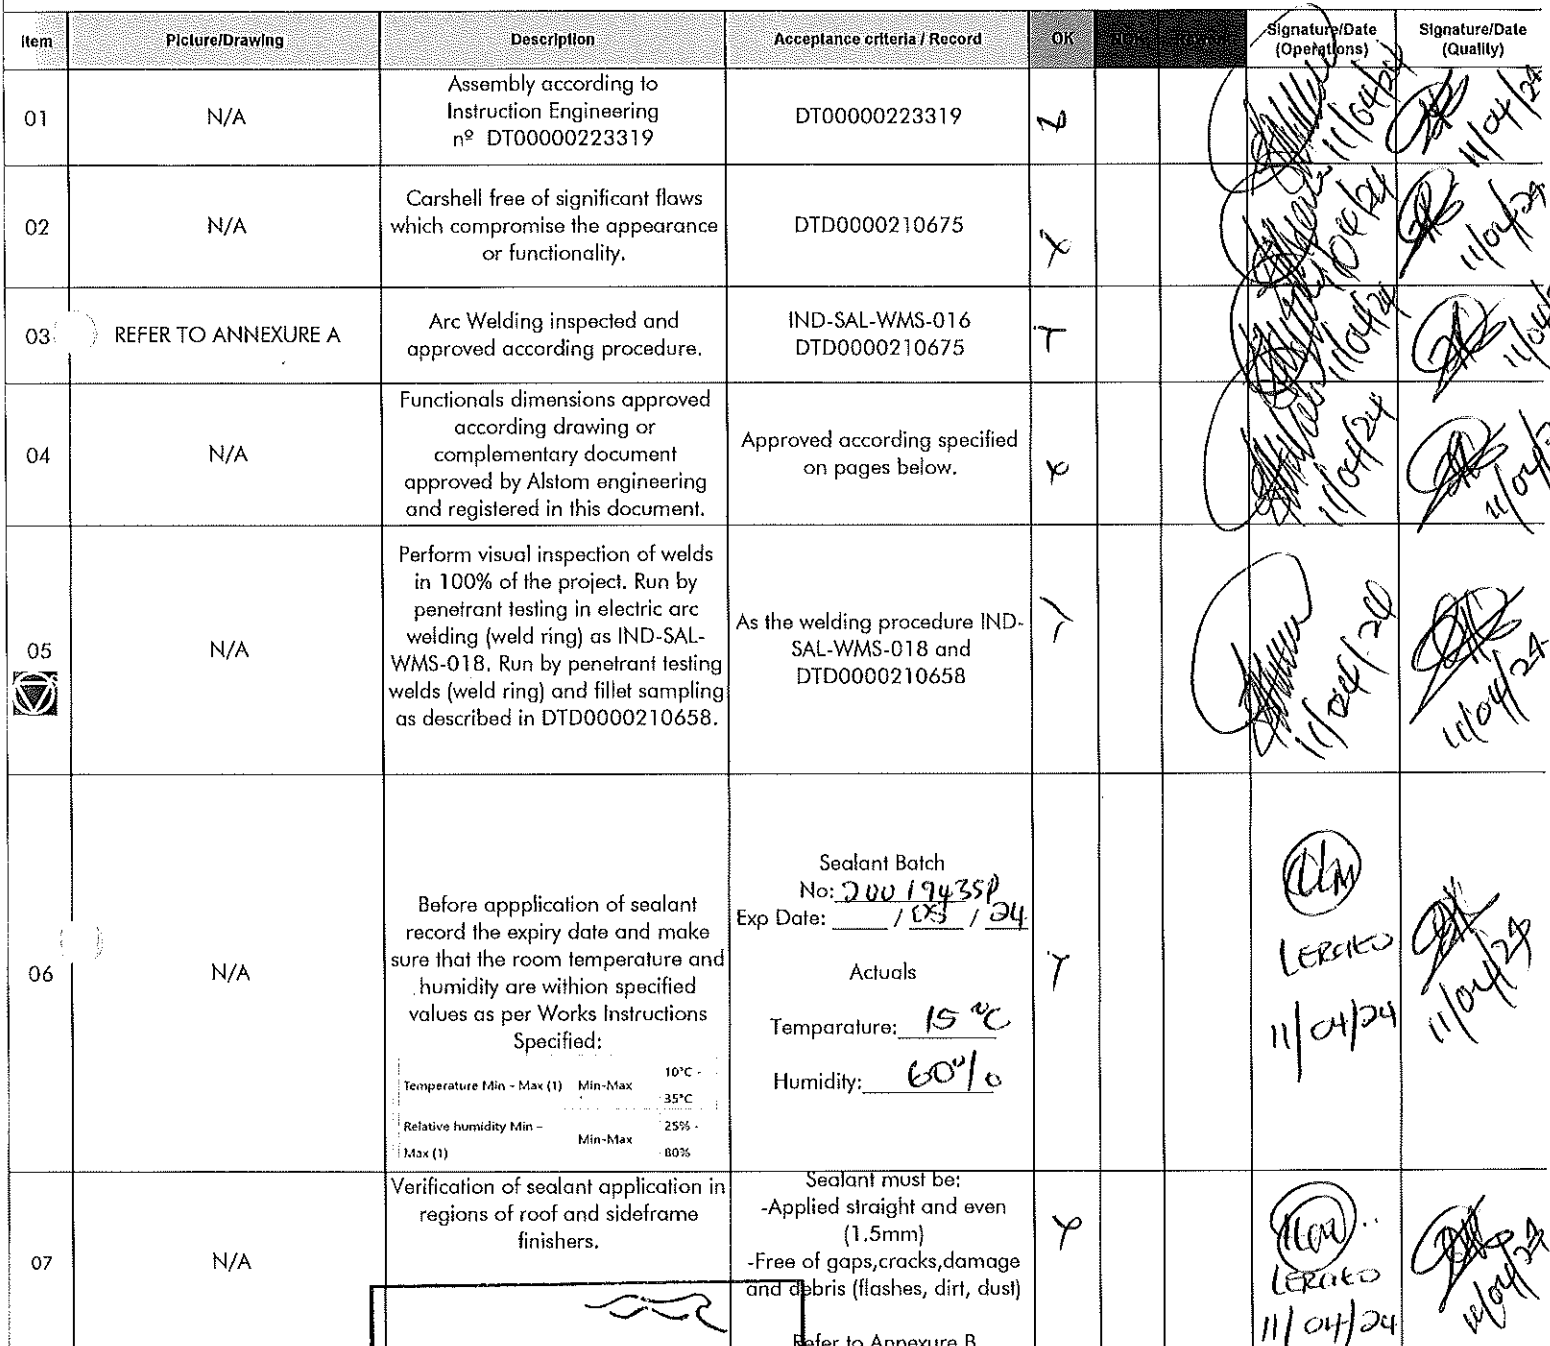 Item Picture/Drawing Description Acceptance criteria / Record OK Signature/Date Signature/Date
(Operations) (Quality)
01 N/A Assembly according to
Instruction Engineering
nº DT00000223319 DT00000223319
11/04/24 11/04/24
02 N/A Carshell free of significant flaws
which compromise the appearance
or functionality. DTD0000210675
11/04/24
03 REFER TO ANNEXURE A Arc Welding inspected and
approved according procedure. IND-SAL-WMS-016
DTD0000210675
11/04/24
04 N/A Functionals dimensions approved
according drawing or
complementary document
approved by Alstom engineering
and registered in this document. Approved according specified
on pages below.
11/04/24
05 N/A Perform visual inspection of welds
in 100% of the project. Run by
penetrant testing in electric arc
welding (weld ring) as IND-SAL-
WMS-018. Run by penetrant testing
welds (weld ring) and fillet sampling
as described in DTD0000210658. As the welding procedure IND-
SAL-WMS-018 and
DTD0000210658
11/04/24 11/04/24
06 N/A Before appplication of sealant
record the expiry date and make
sure that the room temperature and
humidity are withion specified
values as per Works Instructions
Specified:
Temperature Min - Max (1) Min-Max 10°C -
35°C
Relative humidity Min -
Max (1) Min-Max 25% -
80%
Sealant Batch
No:
Exp Date: / / 24
Actuals
Temparature: 15 °C
Humidity: 60%
11/04/24 11/04/24
07 N/A Verification of sealant application in
regions of roof and sideframe
finishers.
Sealant must be:
-Applied straight and even
(1.5mm)
-Free of gaps,cracks,damage
and debris (flashes, dirt, dust)
Refer to Annexure B
11/04/24